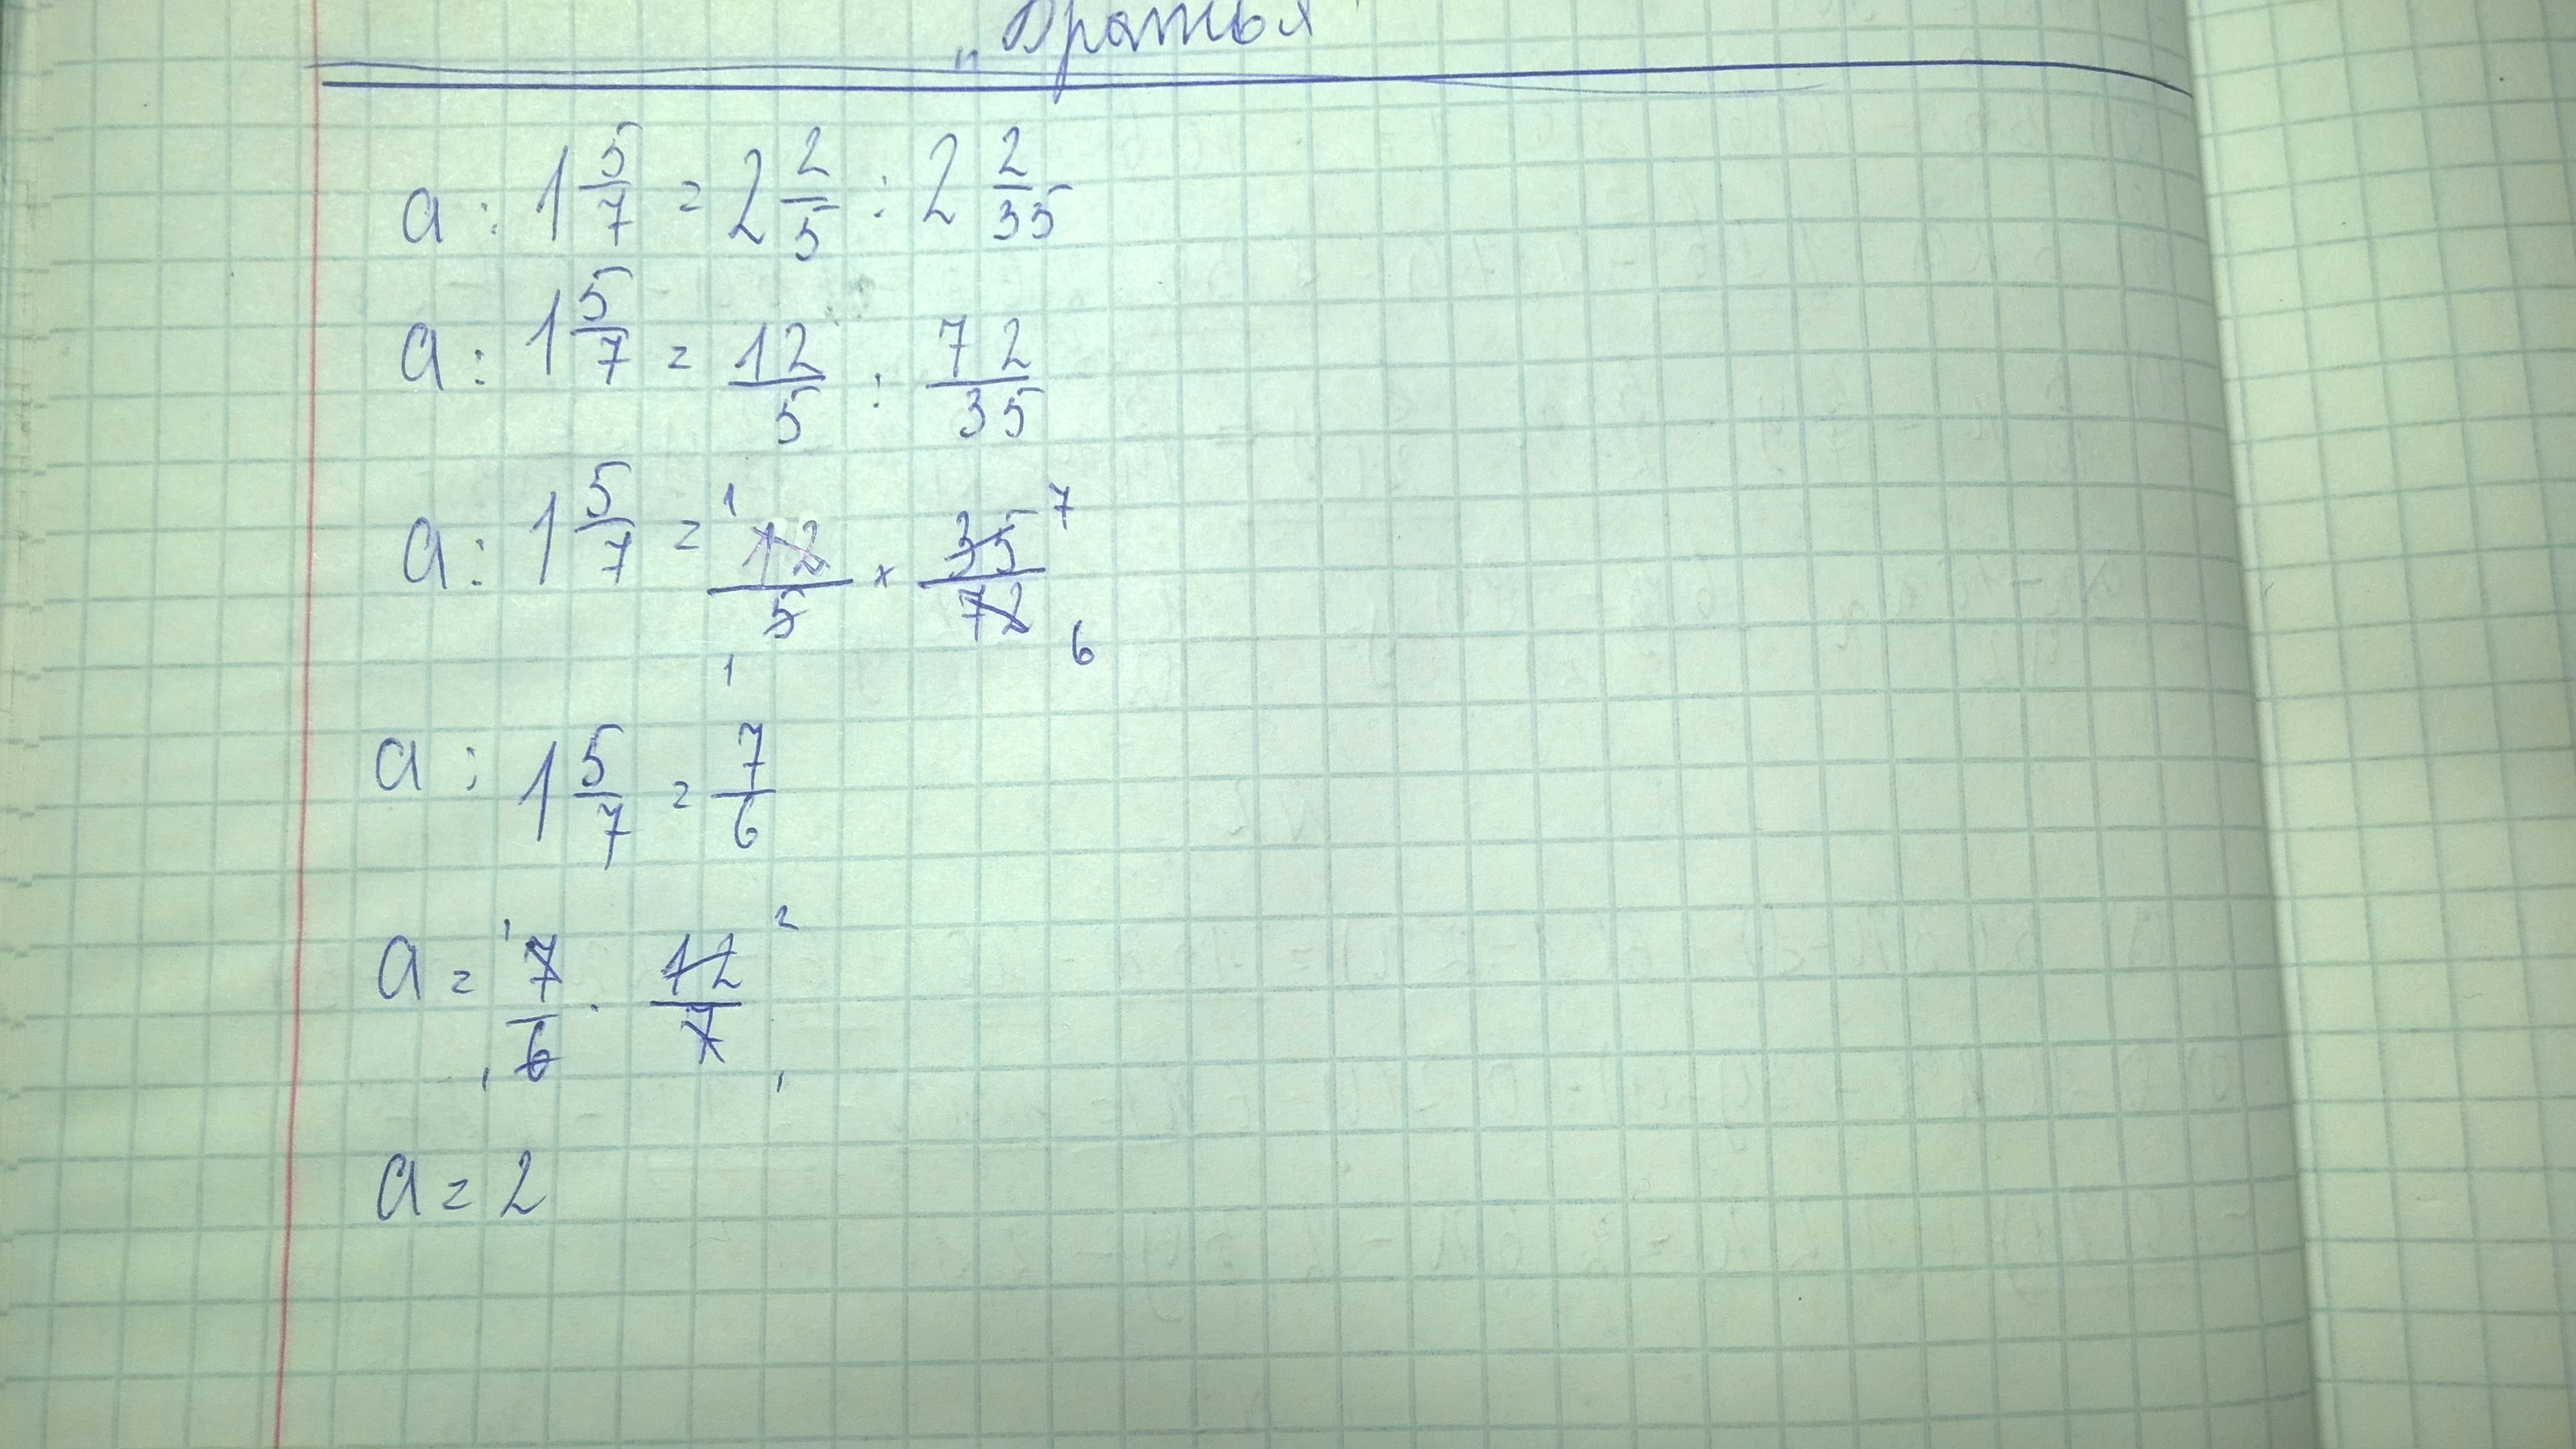 „Братья"
a : 1 5/7 = 2 2/5 : 2 2/35
a : 1 5/7 = 12/5 : 72/35
a : 1 5/7 = 1 12/5 1 × 35/72 7 6
a : 1 5/7 = 7/6
a = 1 7/6 1 · 12/7 2 1
a = 2